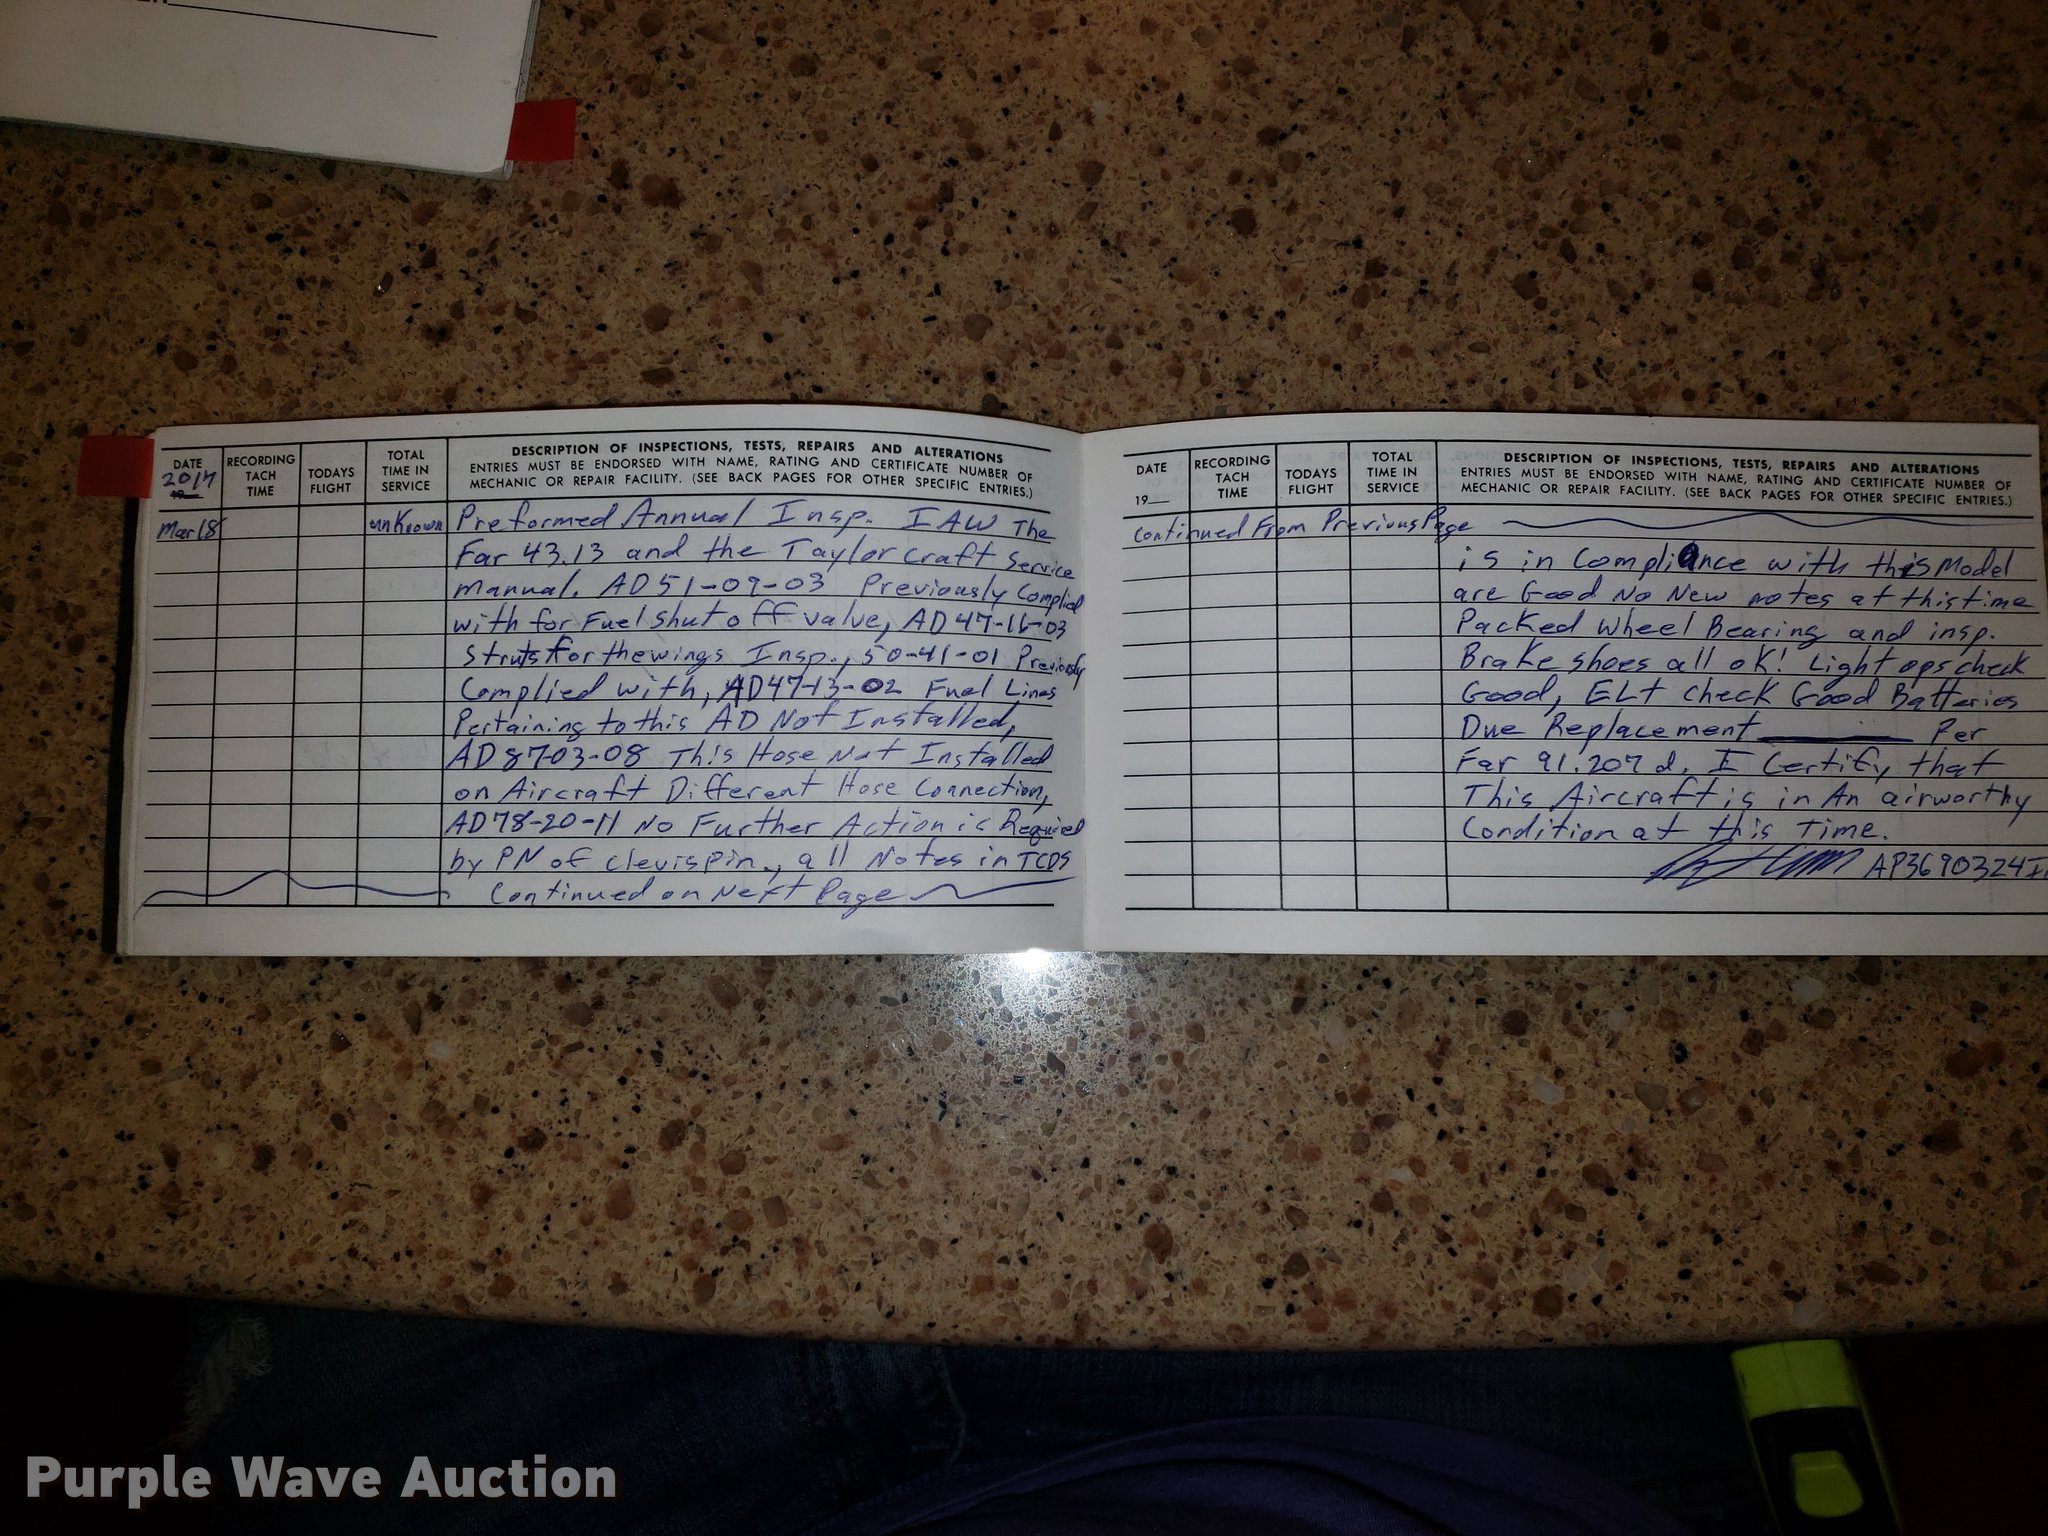 DATE
2017
RECORDING TACH TIME
TODAYS FLIGHT
TOTAL TIME IN SERVICE
DESCRIPTION OF INSPECTIONS, TESTS, REPAIRS AND ALTERATIONS
ENTRIES MUST BE ENDORSED WITH NAME, RATING AND CERTIFICATE NUMBER OF
MECHANIC OR REPAIR FACILITY. (SEE BACK PAGES FOR OTHER SPECIFIC ENTRIES.)
Mar 18 unKnown Preformed Annual Insp. IAW The
Far 43.13 and the Taylor craft Service
manual. AD 51-09-03 Previously Complied
with for Fuel shut off valve, AD 47-16-03
Struts for the wings Insp., 50-41-01 Previously
Complied with, AD 47-13-02 Fuel Lines
Pertaining to this AD Not Installed,
AD 87-03-08 This Hose Not Installed
on Aircraft Different Hose Connection,
AD 78-20-11 No Further Action is Required
by PN of clevis pin., all Notes in TCDS
Continued on Next Page
DATE
19
RECORDING TACH TIME
TODAYS FLIGHT
TOTAL TIME IN SERVICE
DESCRIPTION OF INSPECTIONS, TESTS, REPAIRS AND ALTERATIONS
ENTRIES MUST BE ENDORSED WITH NAME, RATING AND CERTIFICATE NUMBER OF
MECHANIC OR REPAIR FACILITY. (SEE BACK PAGES FOR OTHER SPECIFIC ENTRIES.)
Continued From Previous Page
is in Compliance with this Model
are Good No New notes at this time
Packed Wheel Bearing and insp.
Brake shoes all ok! Light ops check
Good, ELT check Good Batteries
Due Replacement Per
Far 91.207 d. I Certify that
This Aircraft is in An airworthy
Condition at this Time.
AP3690324I
Purple Wave Auction